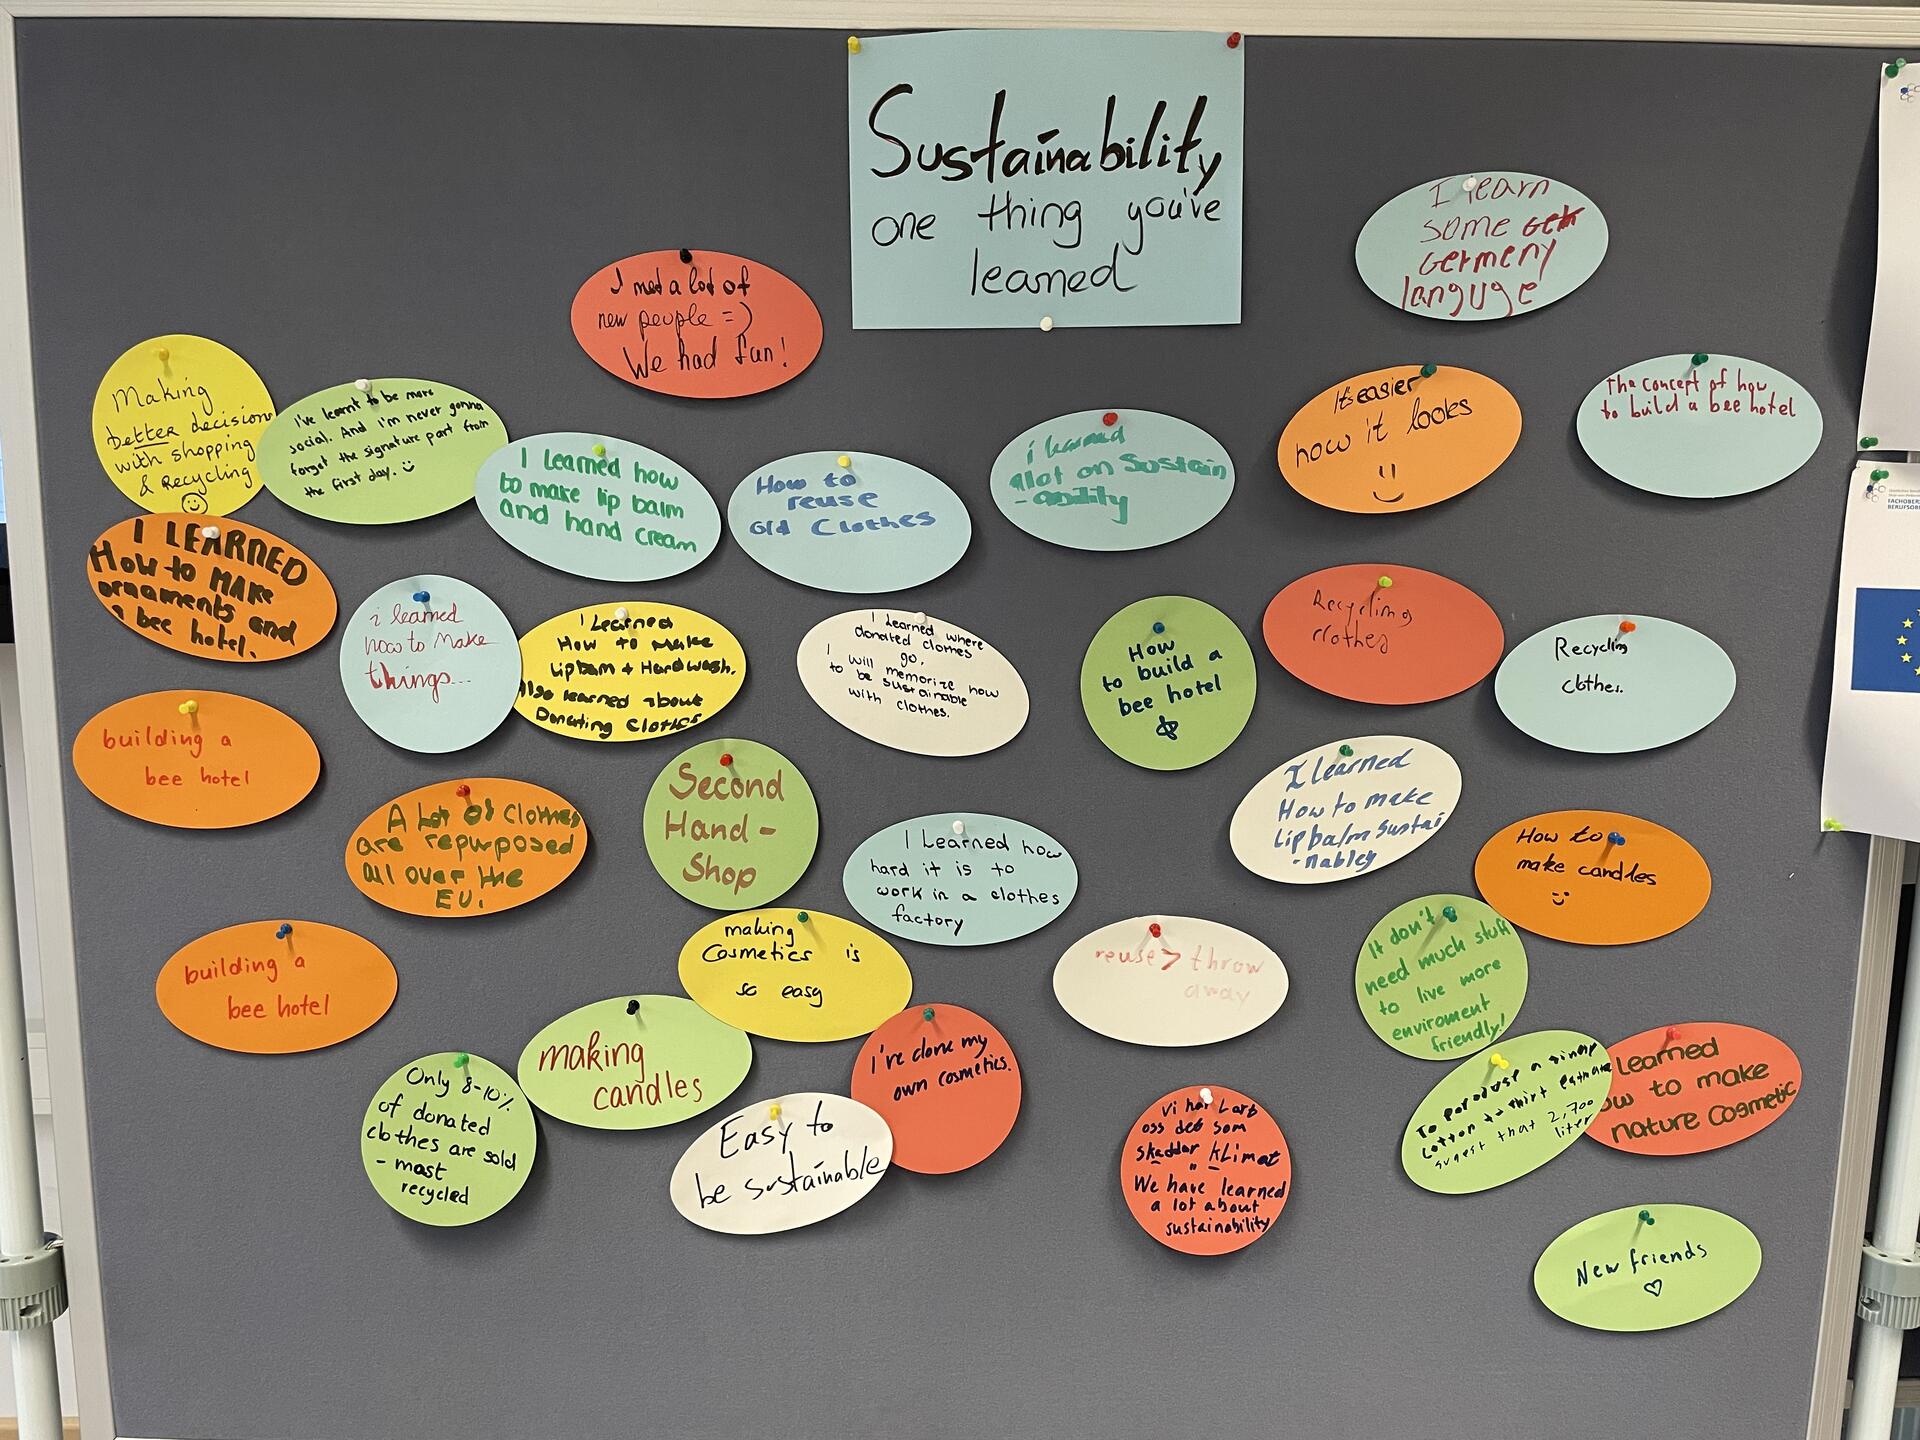 Sustainability
one thing you've
learned
I learn
some Ger
Germeny
languge
I met a lot of
new people =)
We had fun!
Making
better decisions
with shopping
& Recycling
I've learnt to be more
social. And I'm never gonna
forget the signature part from
the first day.
I learned how
to make lip balm
and hand cream
How to
reuse
old Clothes
i learned
alot on Sustain
-ability
It's easier
how it looks
The concept of how
to build a bee hotel
I LEARNED
How to MAKE
ornaments and
a bee hotel.
i learned
how to make
things...
I Learned
How to Make
Lipbam + Handwash.
Also learned about
Donating Clothes
I learned where
donated clothes
go.
I will memorize how
to be sustainable
with clothes.
How
to build a
bee hotel
Recycling
clothes
Recycling
clothes.
building a
bee hotel
A Lot of clothes
are repurposed
all over the
EU.
Second
Hand-
Shop
I Learned how
hard it is to
work in a clothes
factory
I learned
How to make
Lipbalm Sustai
-nabley
How to
make candles
building a
bee hotel
making
Cosmetics is
so easy
reuse > throw
away
It don't
need much stuff
to live more
enviroment
friendly!
making
candles
I've done my
own cosmetics.
Only 8-10%
of donated
clothes are sold
- most
recycled
Easy to
be sustainable
vi har Lärt
oss det som
skaddar klimat
We have learned
a lot about
sustainability
To a
cotton t-shirt estimate
sugest that 2,700
liter
Learned
ow to make
nature Cosmetic
New friends
FACHOBER
BERUFSOB